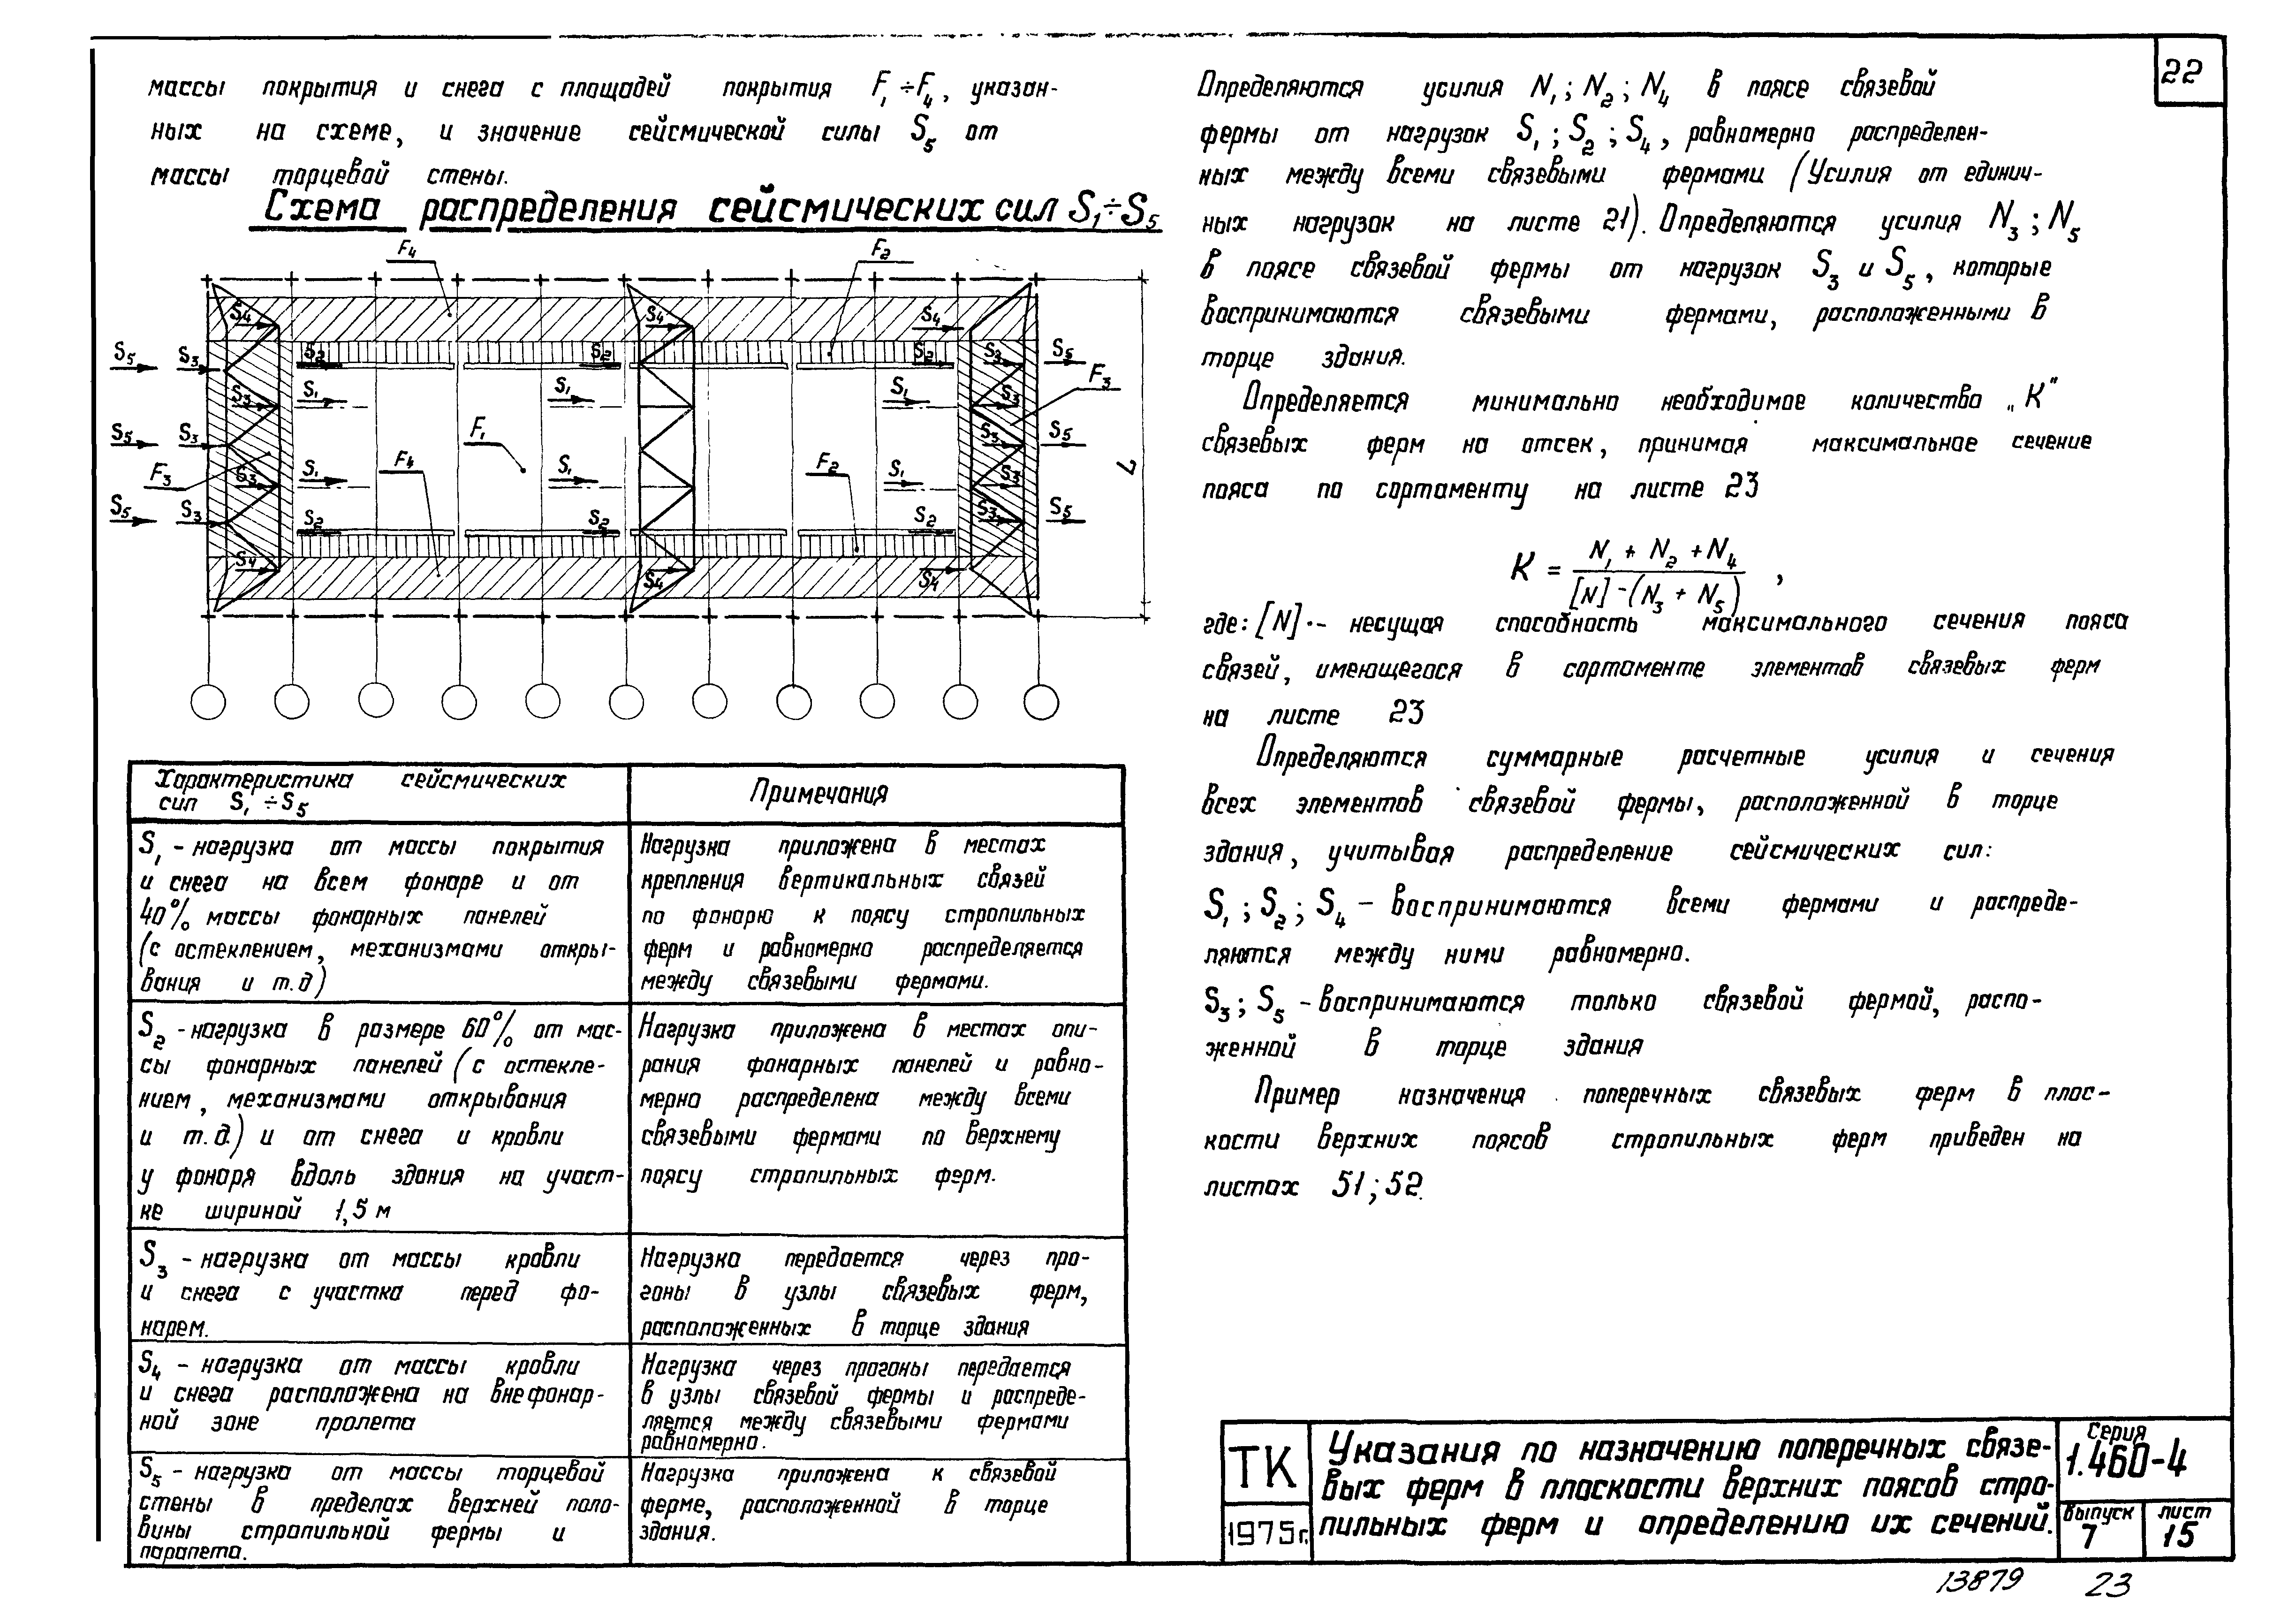 22
массы покрытия и снега с площадей покрытия F₁÷F₄, указан-
ных на схеме, и значение сейсмической силы S₅ от
массы торцевой стены.
Схема распределения сейсмических сил S₁÷S₅
F₄ F₂
S₄ S₄ S₄
S₅ S₃ S₂ S₂ S₂ S₃ S₅
F₃
S₃ S₁ S₁ S₁ S₃
S₅ S₃ F₁ S₃ S₅
F₃ S₃ S₁ F₄ S₁ F₂ S₁ S₃
L
S₅ S₃ S₂ S₂ S₂ S₃ S₅
S₄ S₄ S₄
Характеристика сейсмических
сил S₁÷S₅
Примечания
S₁ - нагрузка от массы покрытия
и снега на всем фонаре и от
40% массы фонарных панелей
(с остеклением, механизмами откры-
вания и т.д)
Нагрузка приложена в местах
крепления вертикальных связей
по фонарю к поясу стропильных
ферм и равномерно распределяется
между связевыми фермами.
S₂ - нагрузка в размере 60% от мас-
сы фонарных панелей (с остекле-
нием, механизмами открывания
и т.д.) и от снега и кровли
у фонаря вдоль здания на участ-
ке шириной 1,5 м
Нагрузка приложена в местах опи-
рания фонарных панелей и равно-
мерно распределена между всеми
связевыми фермами по верхнему
поясу стропильных ферм.
S₃ - нагрузка от массы кровли
и снега с участка перед фо-
нарем.
Нагрузка передается через про-
гоны в узлы связевых ферм,
расположенных в торце здания
S₄ - нагрузка от массы кровли
и снега расположена на внефонар-
ной зоне пролета
Нагрузка через прогоны передается
в узлы связевой фермы и распреде-
ляется между связевыми фермами
равномерно.
S₅ - нагрузка от массы торцевой
стены в пределах верхней поло-
вины стропильной фермы и
парапета.
Нагрузка приложена к связевой
ферме, расположенной в торце
здания.
Определяются усилия N₁; N₂; N₄ в поясе связевой
фермы от нагрузок S₁; S₂; S₄, равномерно распределен-
ных между всеми связевыми фермами (Усилия от единич-
ных нагрузок на листе 21). Определяются усилия N₃; N₅
в поясе связевой фермы от нагрузок S₃ и S₅, которые
воспринимаются связевыми фермами, расположенными в
торце здания.
Определяется минимально необходимое количество „К"
связевых ферм на отсек, принимая максимальное сечение
пояса по сортаменту на листе 23
К = (N₁ + N₂ + N₄) / ([N] - (N₃ + N₅)) ,
где: [N] - несущая способность максимального сечения пояса
связей, имеющегося в сортаменте элементов связевых ферм
на листе 23
Определяются суммарные расчетные усилия и сечения
всех элементов связевой фермы, расположенной в торце
здания, учитывая распределение сейсмических сил:
S₁; S₂; S₄ - воспринимаются всеми фермами и распреде-
ляются между ними равномерно.
S₃; S₅ - воспринимаются только связевой фермой, распо-
женной в торце здания
Пример назначения поперечных связевых ферм в плос-
кости верхних поясов стропильных ферм приведен на
листах 51; 52.
ТК
1975г.
Указания по назначению поперечных связе-
вых ферм в плоскости верхних поясов стро-
пильных ферм и определению их сечений.
Серия
1.460-4
Выпуск
7
лист
15
13879 23